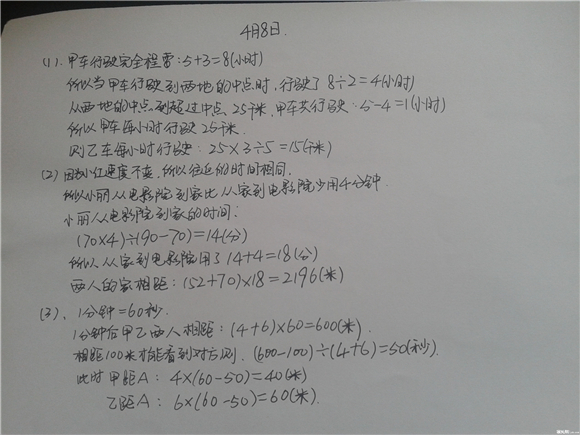 4月8日.
(1). 甲车行驶完全程需：5+3=8(小时)
所以当甲车行驶到两地的中点时，行驶了 8÷2=4(小时)
从两地的中点到超过中点 25千米，甲车共行驶：5-4=1(小时)
所以甲车每小时行驶 25千米.
则乙车每小时行驶：25×3÷5=15(千米)
(2) 因为小红速度不变，所以往返的时间相同.
所以小丽从电影院到家比从家到电影院少用4分钟.
小丽从电影院到家的时间：
(70×4)÷(90-70)=14(分)
所以从家到电影院用了 14+4=18(分)
两人的家相距：(52+70)×18=2196(米)
(3). 1分钟=60秒.
1分钟后甲乙两人相距：(4+6)×60=600(米).
相距100米才能看到对方则. (600-100)÷(4+6)=50(秒).
此时甲距A：4×(60-50)=40(米)
乙距A：6×(60-50)=60(米).